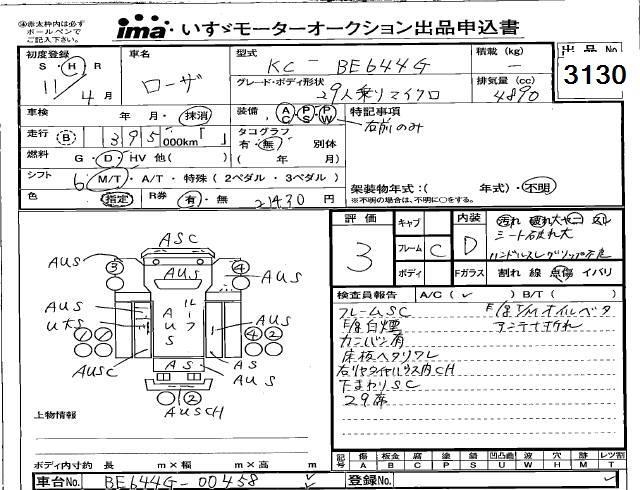 ④赤太枠内は必ずボールペンでご記入下さい。
ima いすゞモーターオークション出品申込書
初度登録 S・H・R 11年4月
車名 ローザ
型式 KC-BE644G
グレード・ボディ形状 29人乗りマイクロ
積載(kg) —
排気量(cc) 4890
出品No 3130
車検 年 月・抹消
装備 AC PS PW
特記事項 右前のみ
走行 B 395,000km「 」
タコグラフ 有・無 別体 ( 年 月)
燃料 G・D・HV 他( )
シフト 6 M/T・A/T・特殊(2ペダル・3ペダル)
架装物年式:( 年式)・不明
※不明の場合は、不明に○をする。
色 指定 R券 有・無 21430円
評価 3
キャブ
フレーム C
ボディ
内装 D 汚れ 破れ大
シート破れ大
Fガラス 割れ 線 点傷 イバリ
検査員報告 A/C(✓) B/T( )
フレームSC
E/g白煙
カンバン有
床板ヘタリワレ
下まわりSC
29席
E/g T/Mオイルベタ
アンテナ折れ
ASC
AUS
③ ④
AUS
AUS
AUS
UKS
AUS
ルーフ
AUS
AUSC
④ ②
AS
AS
AUS
②
AUSCH
上物情報
ボディ内寸約 長 m×幅 m×高 m
記号 傷A 板金B 腐C 塗P 錆S 凹凸轟U 波W 穴H 痕M レツ割T
車台No. BE644G-00458
登録No.